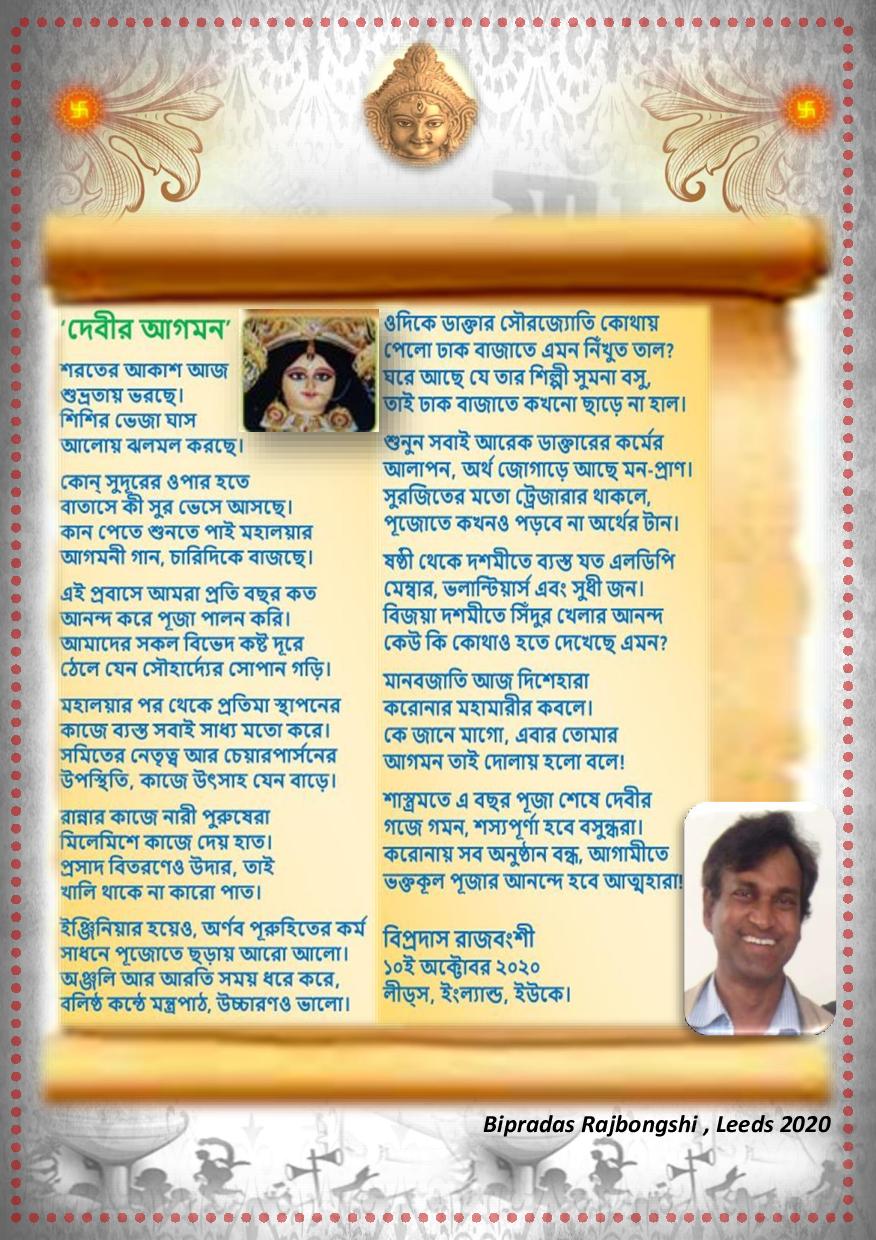 'দেবীর আগমন'
শরতের আকাশ আজ
শুভ্রতায় ভরছে।
শিশির ভেজা ঘাস
আলোয় ঝলমল করছে।
কোন্ সুদূরের ওপার হতে
বাতাসে কী সুর ভেসে আসছে।
কান পেতে শুনতে পাই মহালয়ার
আগমনী গান, চারিদিকে বাজছে।
এই প্রবাসে আমরা প্রতি বছর কত
আনন্দ করে পূজা পালন করি।
আমাদের সকল বিভেদ কষ্ট দূরে
ঠেলে যেন সৌহার্দ্যের সোপান গড়ি।
মহালয়ার পর থেকে প্রতিমা স্থাপনের
কাজে ব্যস্ত সবাই সাধ্য মতো করে।
সমিতের নেতৃত্ব আর চেয়ারপার্সনের
উপস্থিতি, কাজে উৎসাহ যেন বাড়ে।
রান্নার কাজে নারী পুরুষেরা
মিলেমিশে কাজে দেয় হাত।
প্রসাদ বিতরণেও উদার, তাই
খালি থাকে না কারো পাত।
ইঞ্জিনিয়ার হয়েও, অর্ণব পূরুহিতের কর্ম
সাধনে পূজোতে ছড়ায় আরো আলো।
অঞ্জলি আর আরতি সময় ধরে করে,
বলিষ্ঠ কন্ঠে মন্ত্রপাঠ, উচ্চারণও ভালো।
ওদিকে ডাক্তার সৌরজ্যোতি কোথায়
পেলো ঢাক বাজাতে এমন নিঁখুত তাল?
ঘরে আছে যে তার শিল্পী সুমনা বসু,
তাই ঢাক বাজাতে কখনো ছাড়ে না হাল।
শুনুন সবাই আরেক ডাক্তারের কর্মের
আলাপন, অর্থ জোগাড়ে আছে মন-প্রাণ।
সুরজিতের মতো ট্রেজারার থাকলে,
পূজোতে কখনও পড়বে না অর্থের টান।
ষষ্ঠী থেকে দশমীতে ব্যস্ত যত এলডিপি
মেম্বার, ভলান্টিয়ার্স এবং সুধী জন।
বিজয়া দশমীতে সিঁদুর খেলার আনন্দ
কেউ কি কোথাও হতে দেখেছে এমন?
মানবজাতি আজ দিশেহারা
করোনার মহামারীর কবলে।
কে জানে মাগো, এবার তোমার
আগমন তাই দোলায় হলো বলে!
শাস্ত্রমতে এ বছর পূজা শেষে দেবীর
গজে গমন, শস্যপূর্ণা হবে বসুন্ধরা।
করোনায় সব অনুষ্ঠান বন্ধ, আগামীতে
ভক্তকূল পূজার আনন্দে হবে আত্মহারা!
বিপ্রদাস রাজবংশী
১০ই অক্টোবর ২০২০
লীড্স, ইংল্যান্ড, ইউকে।
Bipradas Rajbongshi , Leeds 2020